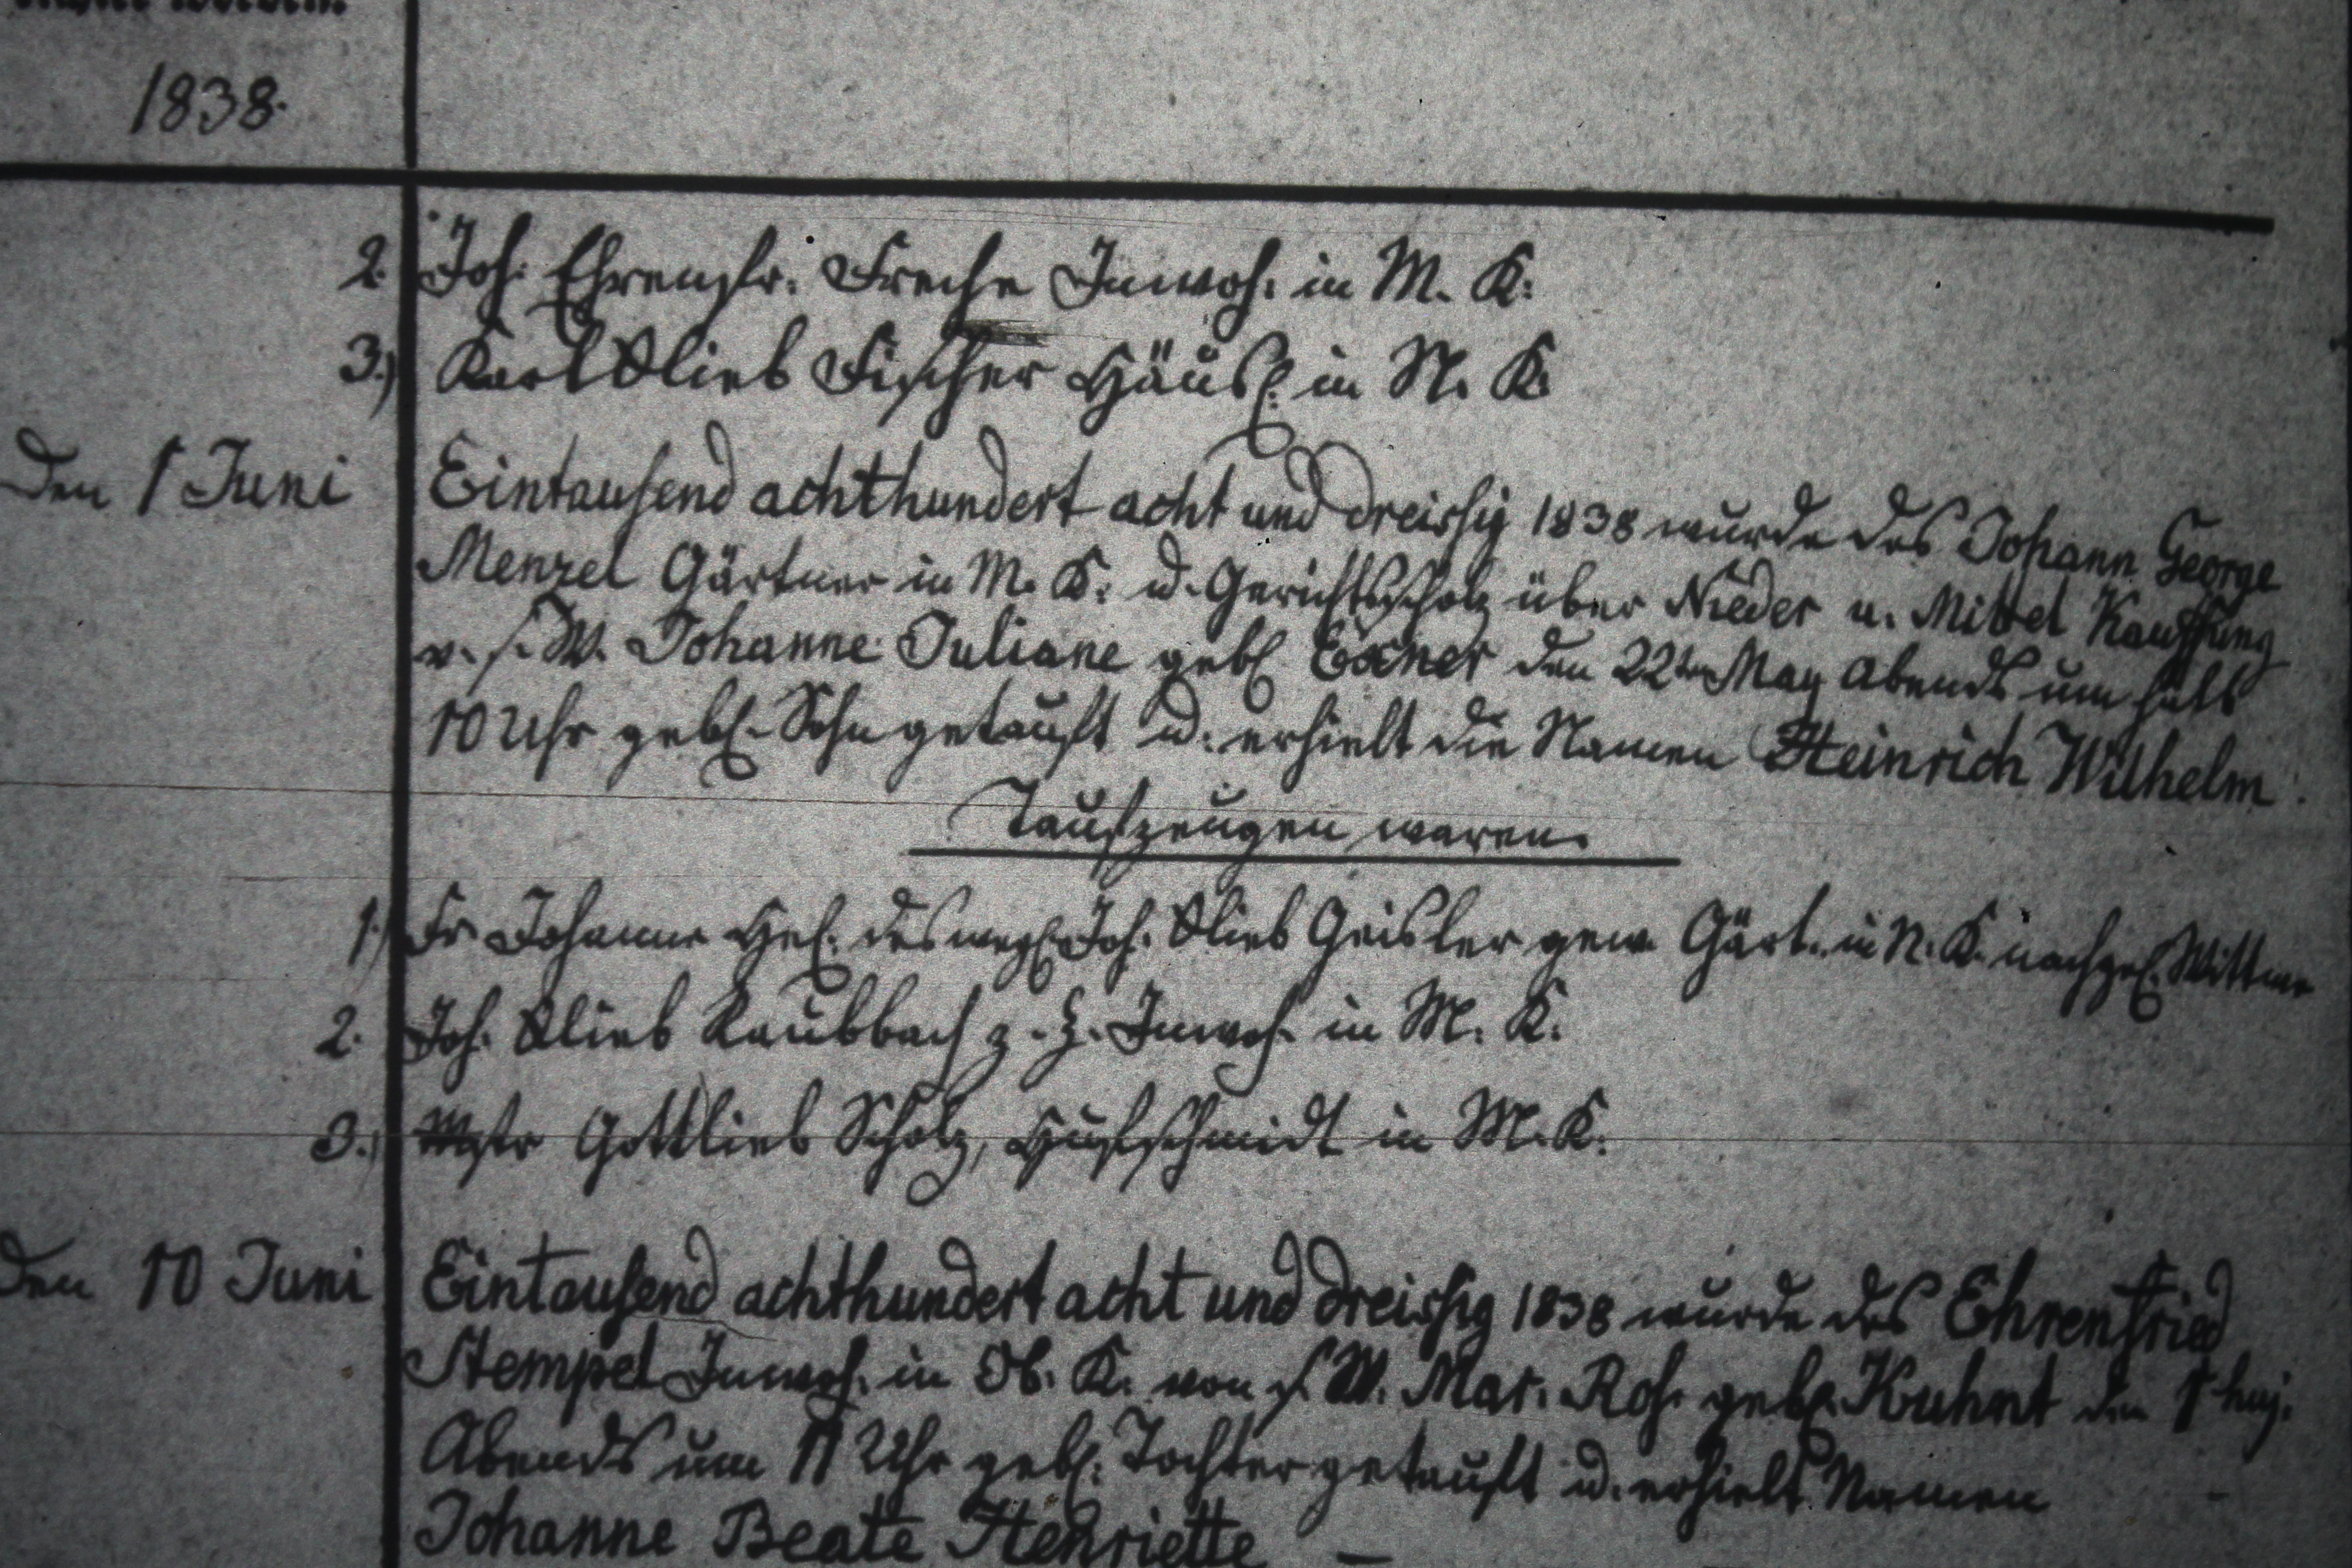 1838.
2. Joh. Ehrenfr. Freche Inwoh. in M. K.
3.) Karl Glieb Fischer Häusl. in N. K.
Den 1 Juni Eintausend achthundert acht und dreissig 1838 wurde des Johann George
Menzel Gärtner in M. K. u. Gerichtsscholz über Nieder u. Mittel Kauffung
v. s. W. Johanne Juliane geb. Exner den 22ten May Abends um halb
10 Uhr geb. Sohn getauft u. erhielt die Namen Heinrich Wilhelm.
Taufzeugen waren.
1.) Fr Johanne Hel. des Joh. Glieb Geisler gew. Gärt. in N. K. nachgel. Wittwe
2. Joh. Glieb Raubbach z. Z. Inwoh. in M. K.
3.) Mstr Gottlieb Scholz, Hufschmidt in M. K.
Den 10 Juni Eintausend achthundert acht und dreissig 1838 wurde des Ehrenfried
Stempel Inwoh. in Ob. K. von s. W. Mar. Ros. geb. Kuhnt den 1 huj.
Abends um 11 Uhr geb. Tochter getauft u. erhielt Namen
Johanne Beate Henriette —